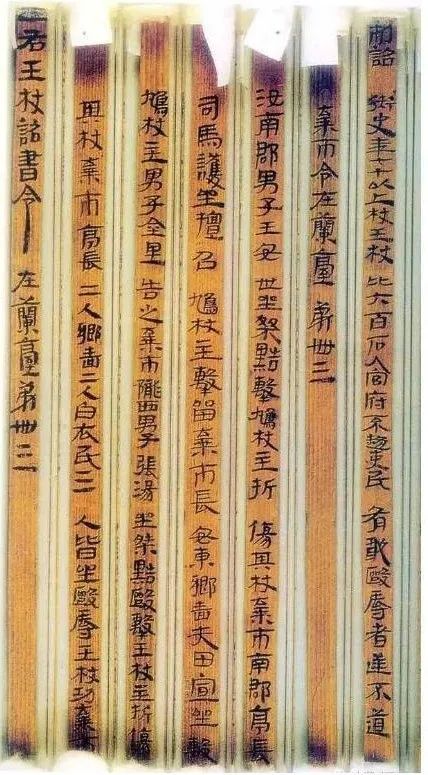 制詔 御史年七十以上杖王杖 比六百石入官府不趨吏民 有敢毆辱者逆不道
棄市令在蘭臺第卌三
汝南郡男子王安 世坐桀黠擊鳩杖主折 傷其杖棄市南郡亭長
司馬護坐擅召 鳩杖主擊留棄市長 安東鄉嗇夫田宣坐毄
鳩杖主男子金里 告之棄市隴西男子張湯 坐桀黠毆擊王杖主折傷
其杖棄市亭長 二人鄉嗇二人白衣民三 人皆坐毆辱王杖功棄市
右王杖詔書令 在蘭臺第卌三